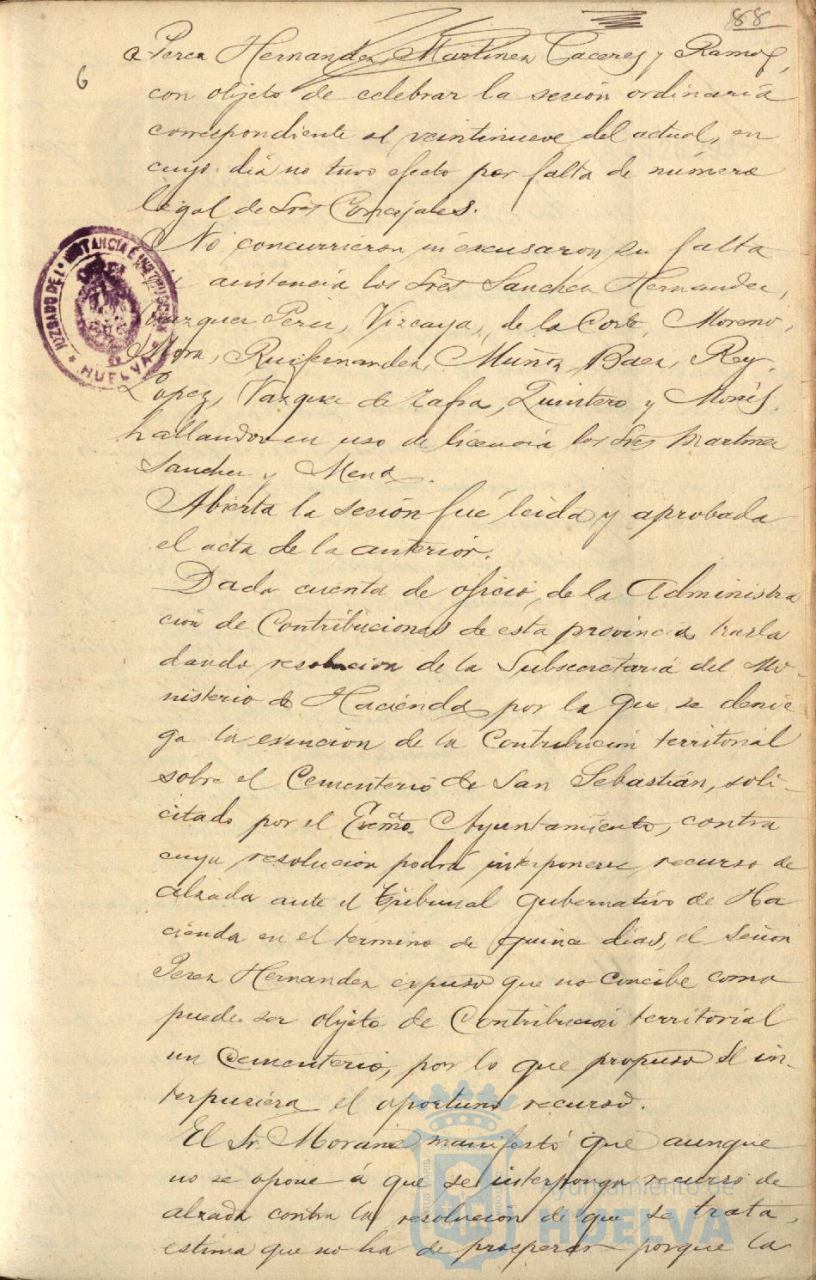 88
6
Perez Hernandez, Martinez Caceres y Ramos,
con objeto de celebrar la sesión ordinaria
correspondiente al veintinueve del actual, en
cuyo dia no tuvo efecto por falta de número
legal de Sres Concejales.
No concurrieron ni excusaron su falta
asistencia los Sres Sanchez Hernandez,
Vazquez Perez, Vizcaya, de la Corte, Moreno,
Mora, Ruifernandez, Muñoz, Baez, Rey,
López, Vazquez de Zafra, Quintero y Monís,
hallandose en uso de licencia los Sres Martinez
Sanchez y Mena.
Abierta la sesión fué leida y aprobada
el acta de la anterior.
Dada cuenta de oficio, de la Administra
ción de Contribuciones de esta provincia trasla
dando resolucion de la Subsecretaría del Mi-
nisterio de Hacienda por la que se denie
ga la exencion de la Contribución territorial
sobre el Cementerio de San Sebastián, soli-
citado por el Excmo. Ayuntamiento, contra
cuya resolución podrá interponerse recurso de
alzada ante el Tribunal Gubernativo de Ha
cienda en el termino de quince dias, el Señor
Perez Hernandez expuso que no concibe como
puede ser objeto de Contribución territorial
un Cementerio, por lo que propuso se in-
terpusiera el oportuno recurso.
El Sr. Morano manifestó que aunque
no se opone á que se interponga recurso de
alzada contra la resolución de que se trata,
estima que no ha de prosperar porque la
JUZGADO DE 1ª INSTANCIA E INSTRUCCION
* HUELVA *
Ayuntamiento de
HUELVA